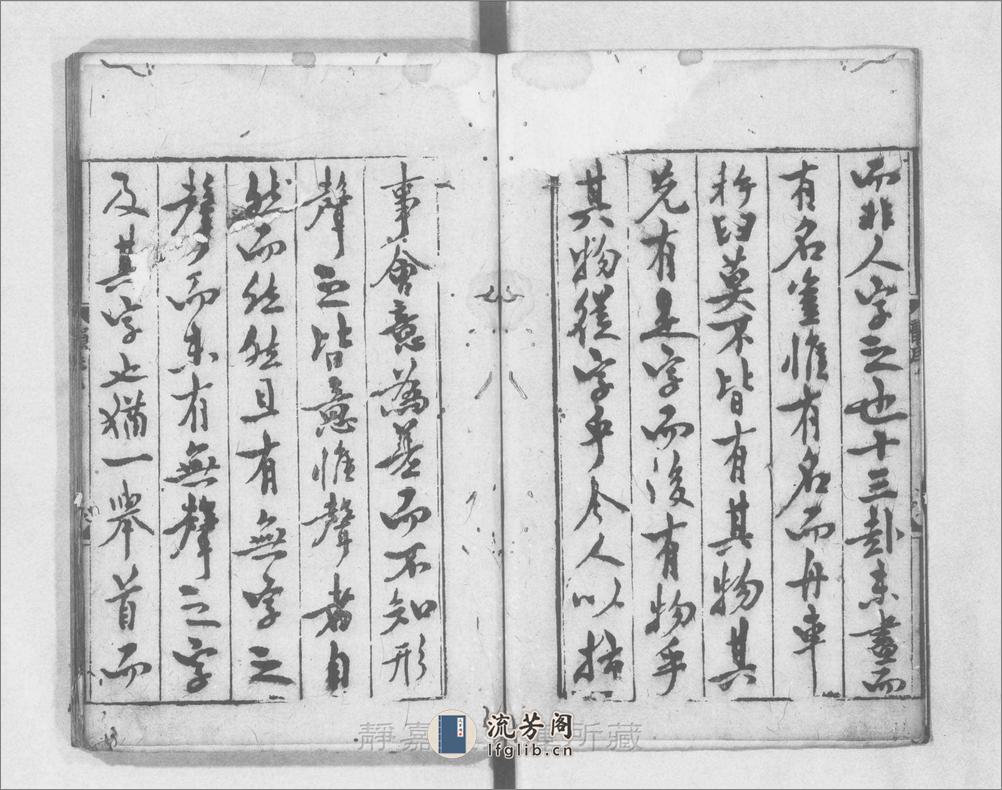 而非人字之也十三卦未畫而
有名奎惟有名而舟車
杵臼莫不皆有其物其
先有是字而後有物乎
其物從字乎今人以指
事會意為甚而不知形
聲之皆意惟聲者自
然而然然且有無字之
聲而未有無聲之字
及其字也猶一舉首而
靜嘉 所藏
流芳阁
lfglib.cn